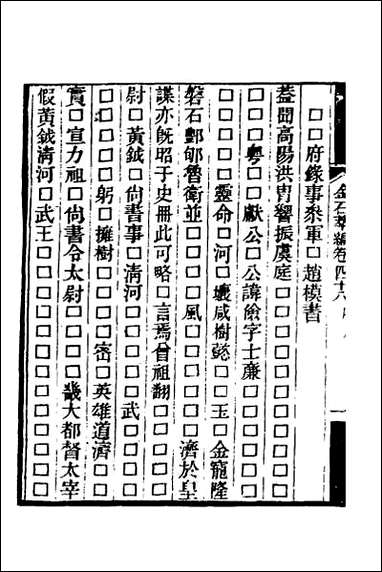 □□府錄事叅軍□趙模書
蓋聞高陽洪胄響振虞庭□□□□□□□□□□
□□□□粵□□獻公□公諱儉字士廉□□□□□
□□□□□靈命□河□壤咸樹懿□□玉□金寵隆
磐石酆郇魯衛並□□□□風□□□□□□濟於皇
諜亦旣昭于史冊此可略□言焉曾祖翻□□□□□
尉□黃鉞□尚書事□淸河□□□□□□武□□□
□□□□□躬□擁樹□□□□□密□英雄道濟□□
實□宣力祖□尚書令太尉□□□□□幾大都督太宰
假黃鉞淸河□武王□□□□□□□□□□□□□
金石萃編卷四十六